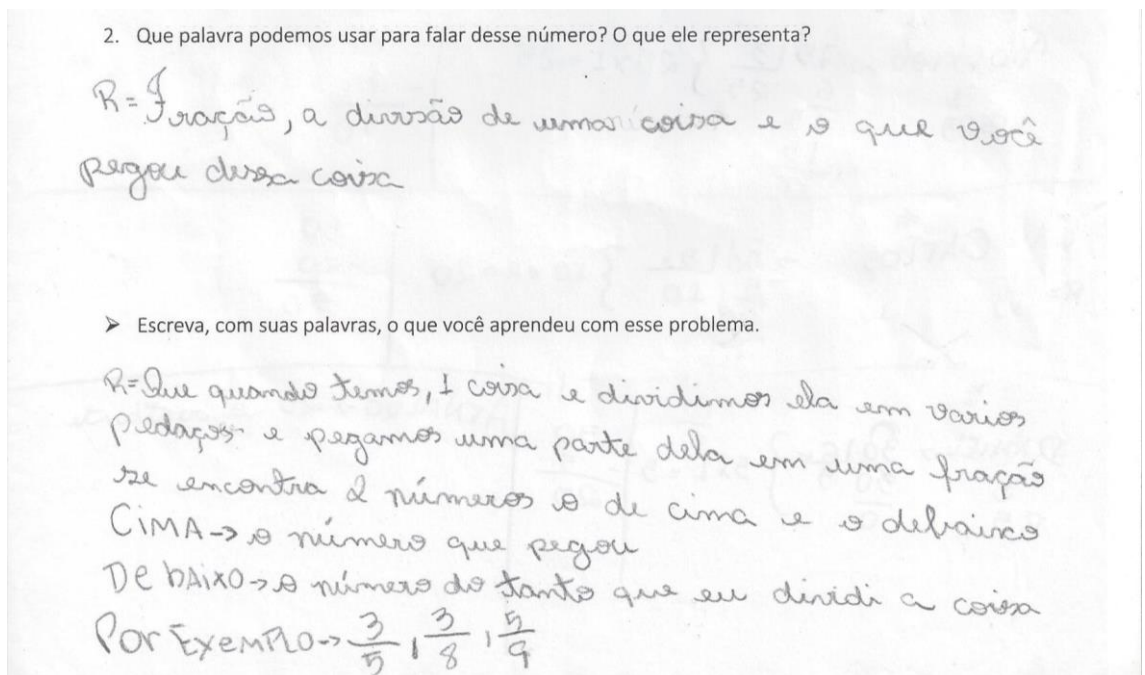 2. Que palavra podemos usar para falar desse número? O que ele representa?
R= Fração, a divisão de uma coisa e o que você
pegou dessa coisa
➤ Escreva, com suas palavras, o que você aprendeu com esse problema.
R= Que quando temos, 1 coisa e dividimos ela em varios
pedaços e pegamos uma parte dela em uma fração
se encontra 2 números o de cima e o debaixo
CiMA-> o número que pegou
De bAixo-> o número do tanto que eu dividi a coisa
Por ExEMPLO-> 3/5, 3/8, 5/9